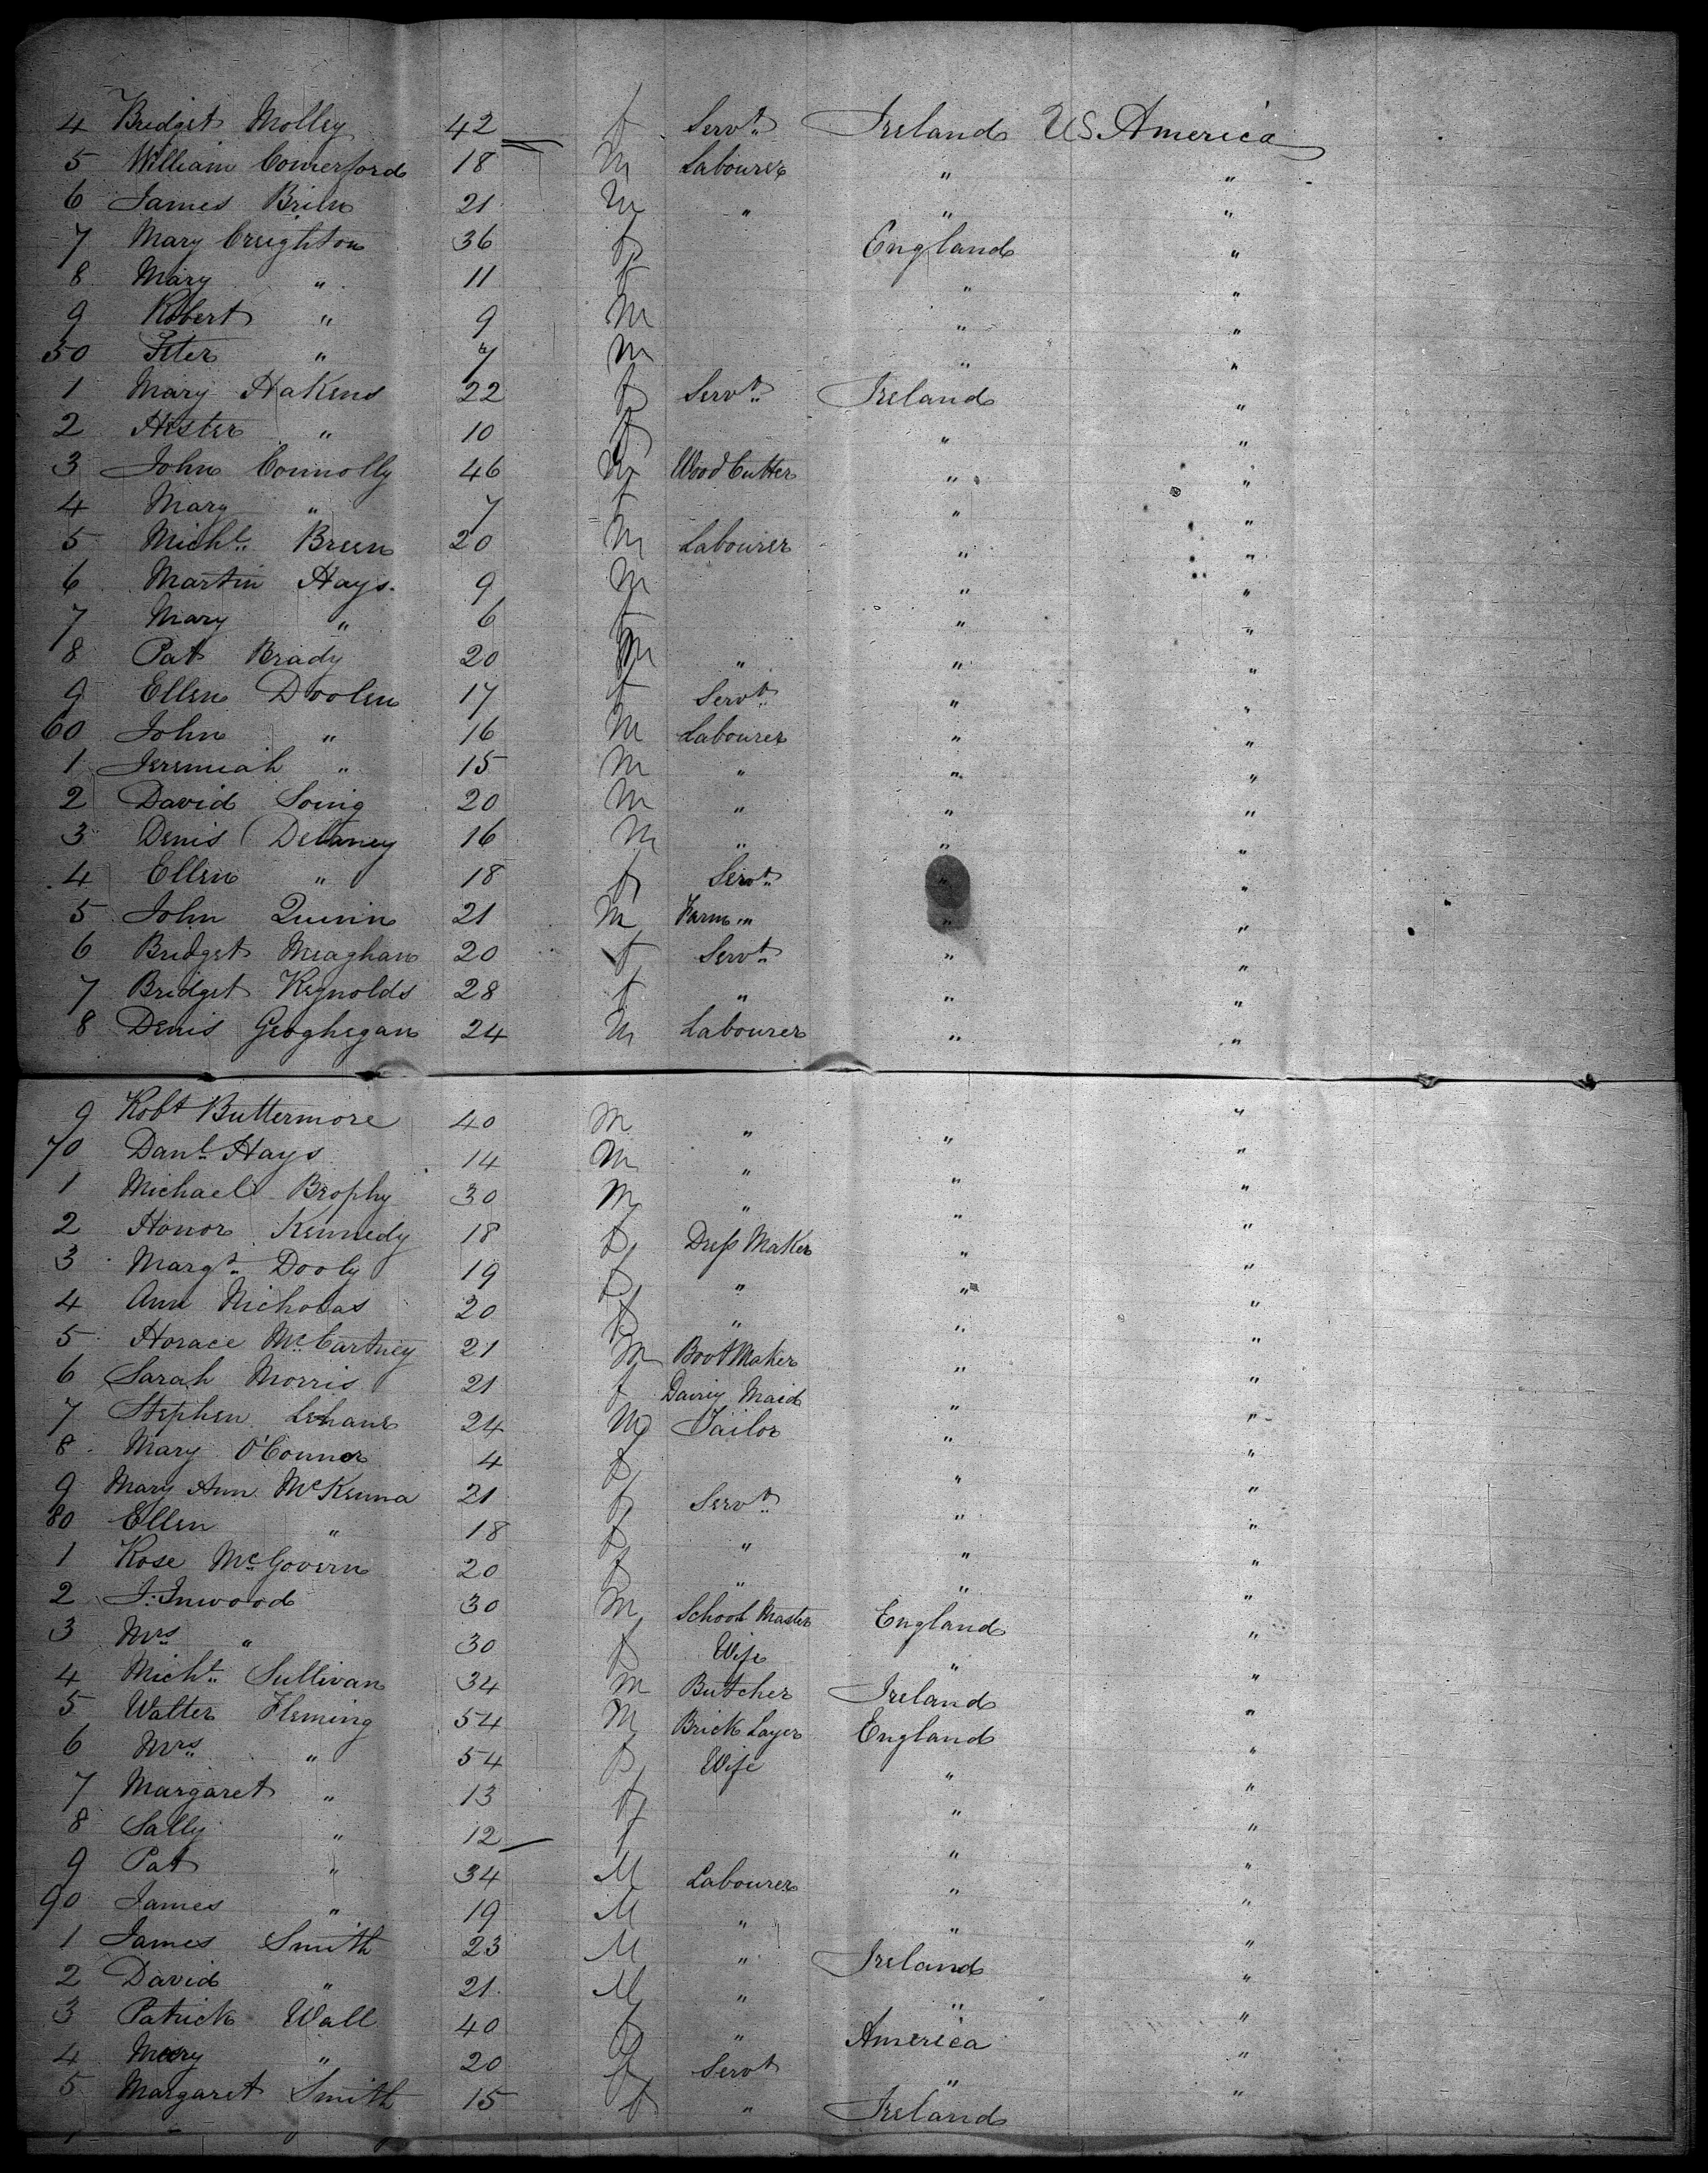 4 Bridget Molley 42 f Servt. Ireland US. America
5 William Comerford 18 M Labourer " "
6 James Brien 21 M " " "
7 Mary Creighton 36 f England "
8 Mary " 11 f " "
9 Robert " 9 M " "
50 Peter " 7 M " "
1 Mary Hakens 22 f Servt. Ireland "
2 Hester " 10 f " "
3 John Connolly 46 M Wood Cutter " "
4 Mary " 7 f " "
5 Michl. Breen 20 M Labourer " "
6 Martin Hays. 9 M " "
7 Mary " 6 f " "
8 Pat Brady 20 M " " "
9 Ellen Doolen 17 f Servt. " "
60 John " 16 M Labourer " "
1 Jeremiah " 15 M " " "
2 David Soing 20 M " " "
3 Denis Delaney 16 M " " "
4 Ellen " 18 f Servt. " "
5 John Quinn 21 M Farm " " "
6 Bridget Meaghan 20 f Servt. " "
7 Bridget Reynolds 28 f " " "
8 Denis Geoghegan 24 M Labourer " "
9 Robt Buttermore 40 M " " "
70 Danl. Hays 14 M " " "
1 Michael Brophy 30 M " " "
2 Honor Kennedy 18 f Dress Maker " "
3 Margt. Dooly 19 f " " "
4 Ann Nicholas 20 f " " "
5 Horace McCartney 21 M Boot Maker " "
6 Sarah Morris 21 f Dairy Maid " "
7 Stephen Lehane 24 M Tailor " "
8 Mary O'Connor 4 f " "
9 Mary Ann McKenna 21 f Servt. " "
80 Ellen " 18 f " " "
1 Rose McGovern 20 f " " "
2 J. Inwood 30 M School Master England "
3 Mrs " 30 f Wife " "
4 Michl. Sullivan 34 M Butcher Ireland "
5 Walter Fleming 54 M Brick Layer England "
6 Mrs " 54 f Wife " "
7 Margaret " 13 f " "
8 Sally " 12 f " "
9 Pat " 34 M Labourer " "
90 James " 19 M " " "
1 James Smith 23 M " Ireland "
2 David " 21 M " " "
3 Patrick Wall 40 f " America "
4 Mary " 20 f Servt " "
5 Margaret Smith 15 f " Ireland